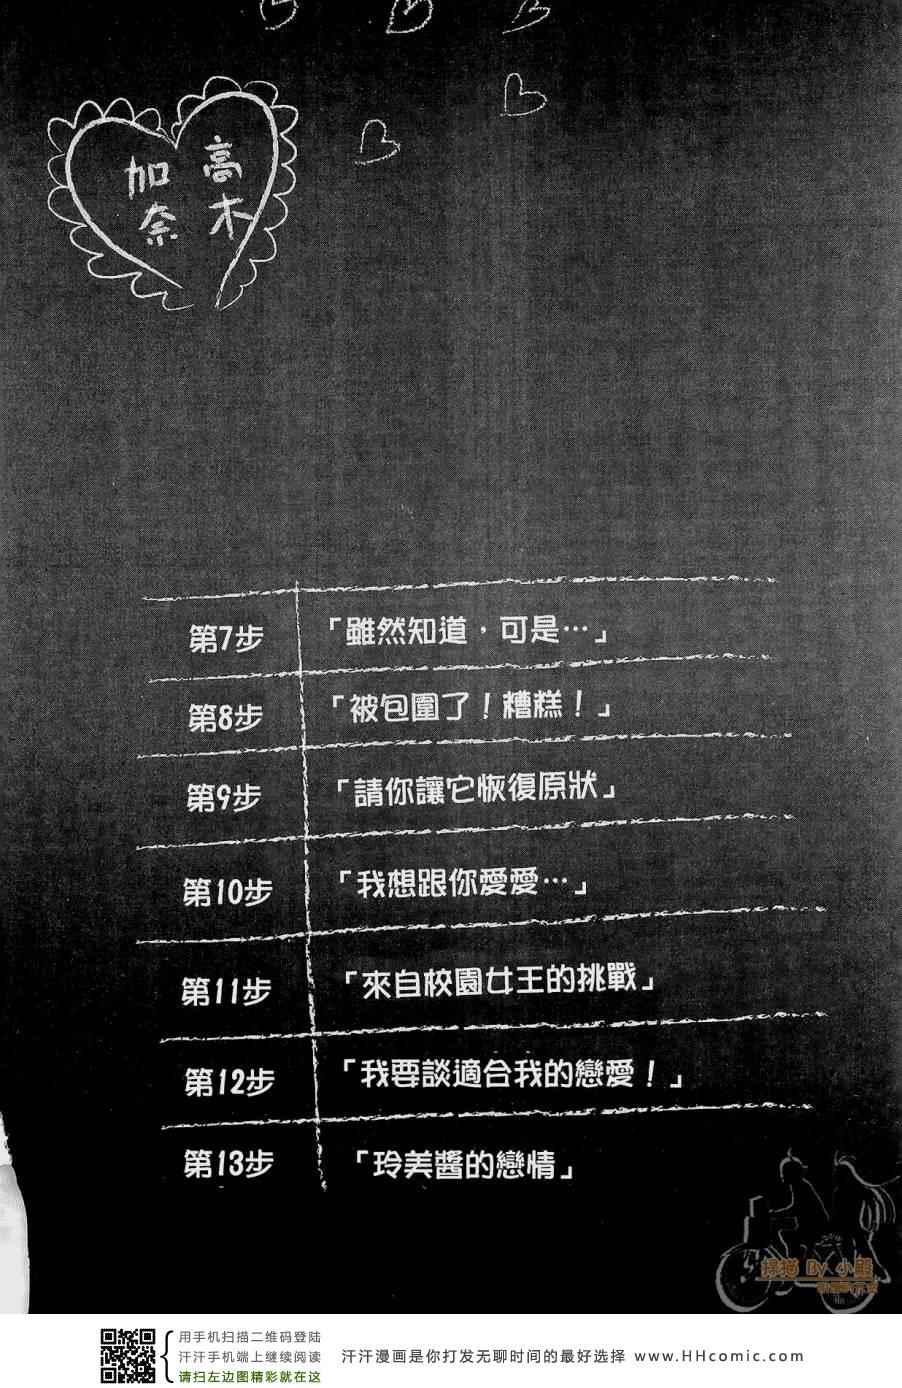 高木
加奈
第7步 「雖然知道，可是…」
第8步 「被包圍了！糟糕！」
第9步 「請你讓它恢復原狀」
第10步 「我想跟你愛愛…」
第11步 「來自校園女王的挑戰」
第12步 「我要談適合我的戀愛！」
第13步 「玲美醬的戀情」
掃描 By 小熊
用手机扫描二维码登陆
汗汗手机端上继续阅读
请扫左边图精彩就在这
汗汗漫画是你打发无聊时间的最好选择 www.HHcomic.com